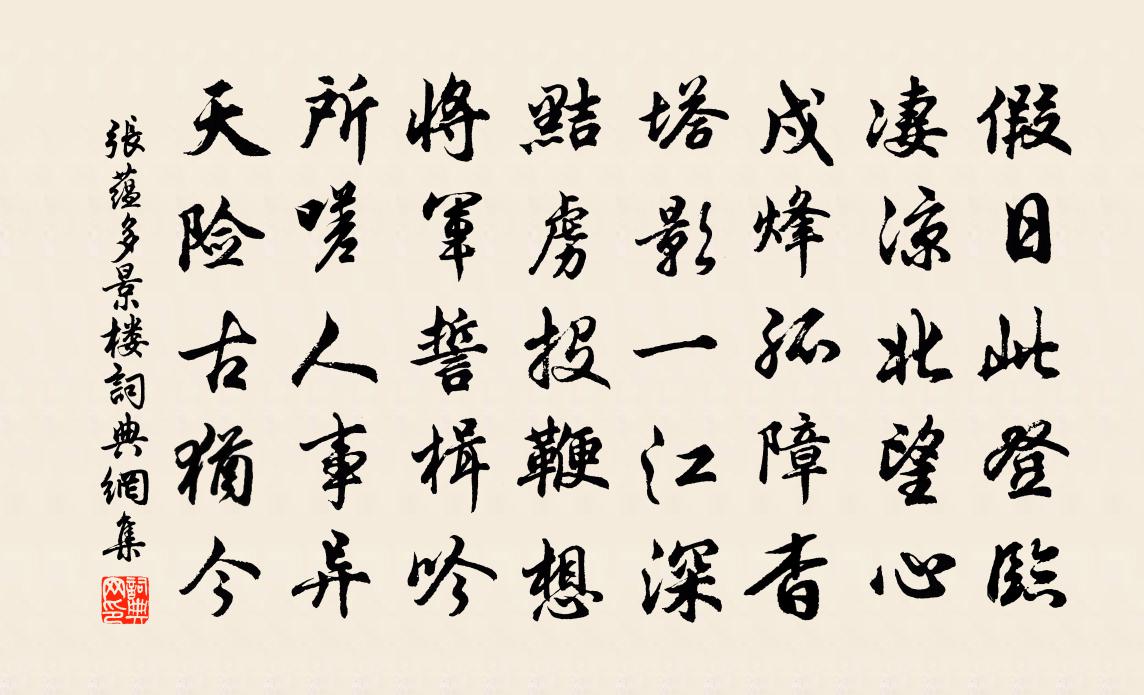 假日此登臨
凄涼北望心
戍烽孤障杳
塔影一江深
黠虜投鞭想
將軍誓楫吟
所嗟人事异
天险古猶今
張蕴多景楼詞典網集
詞典网印